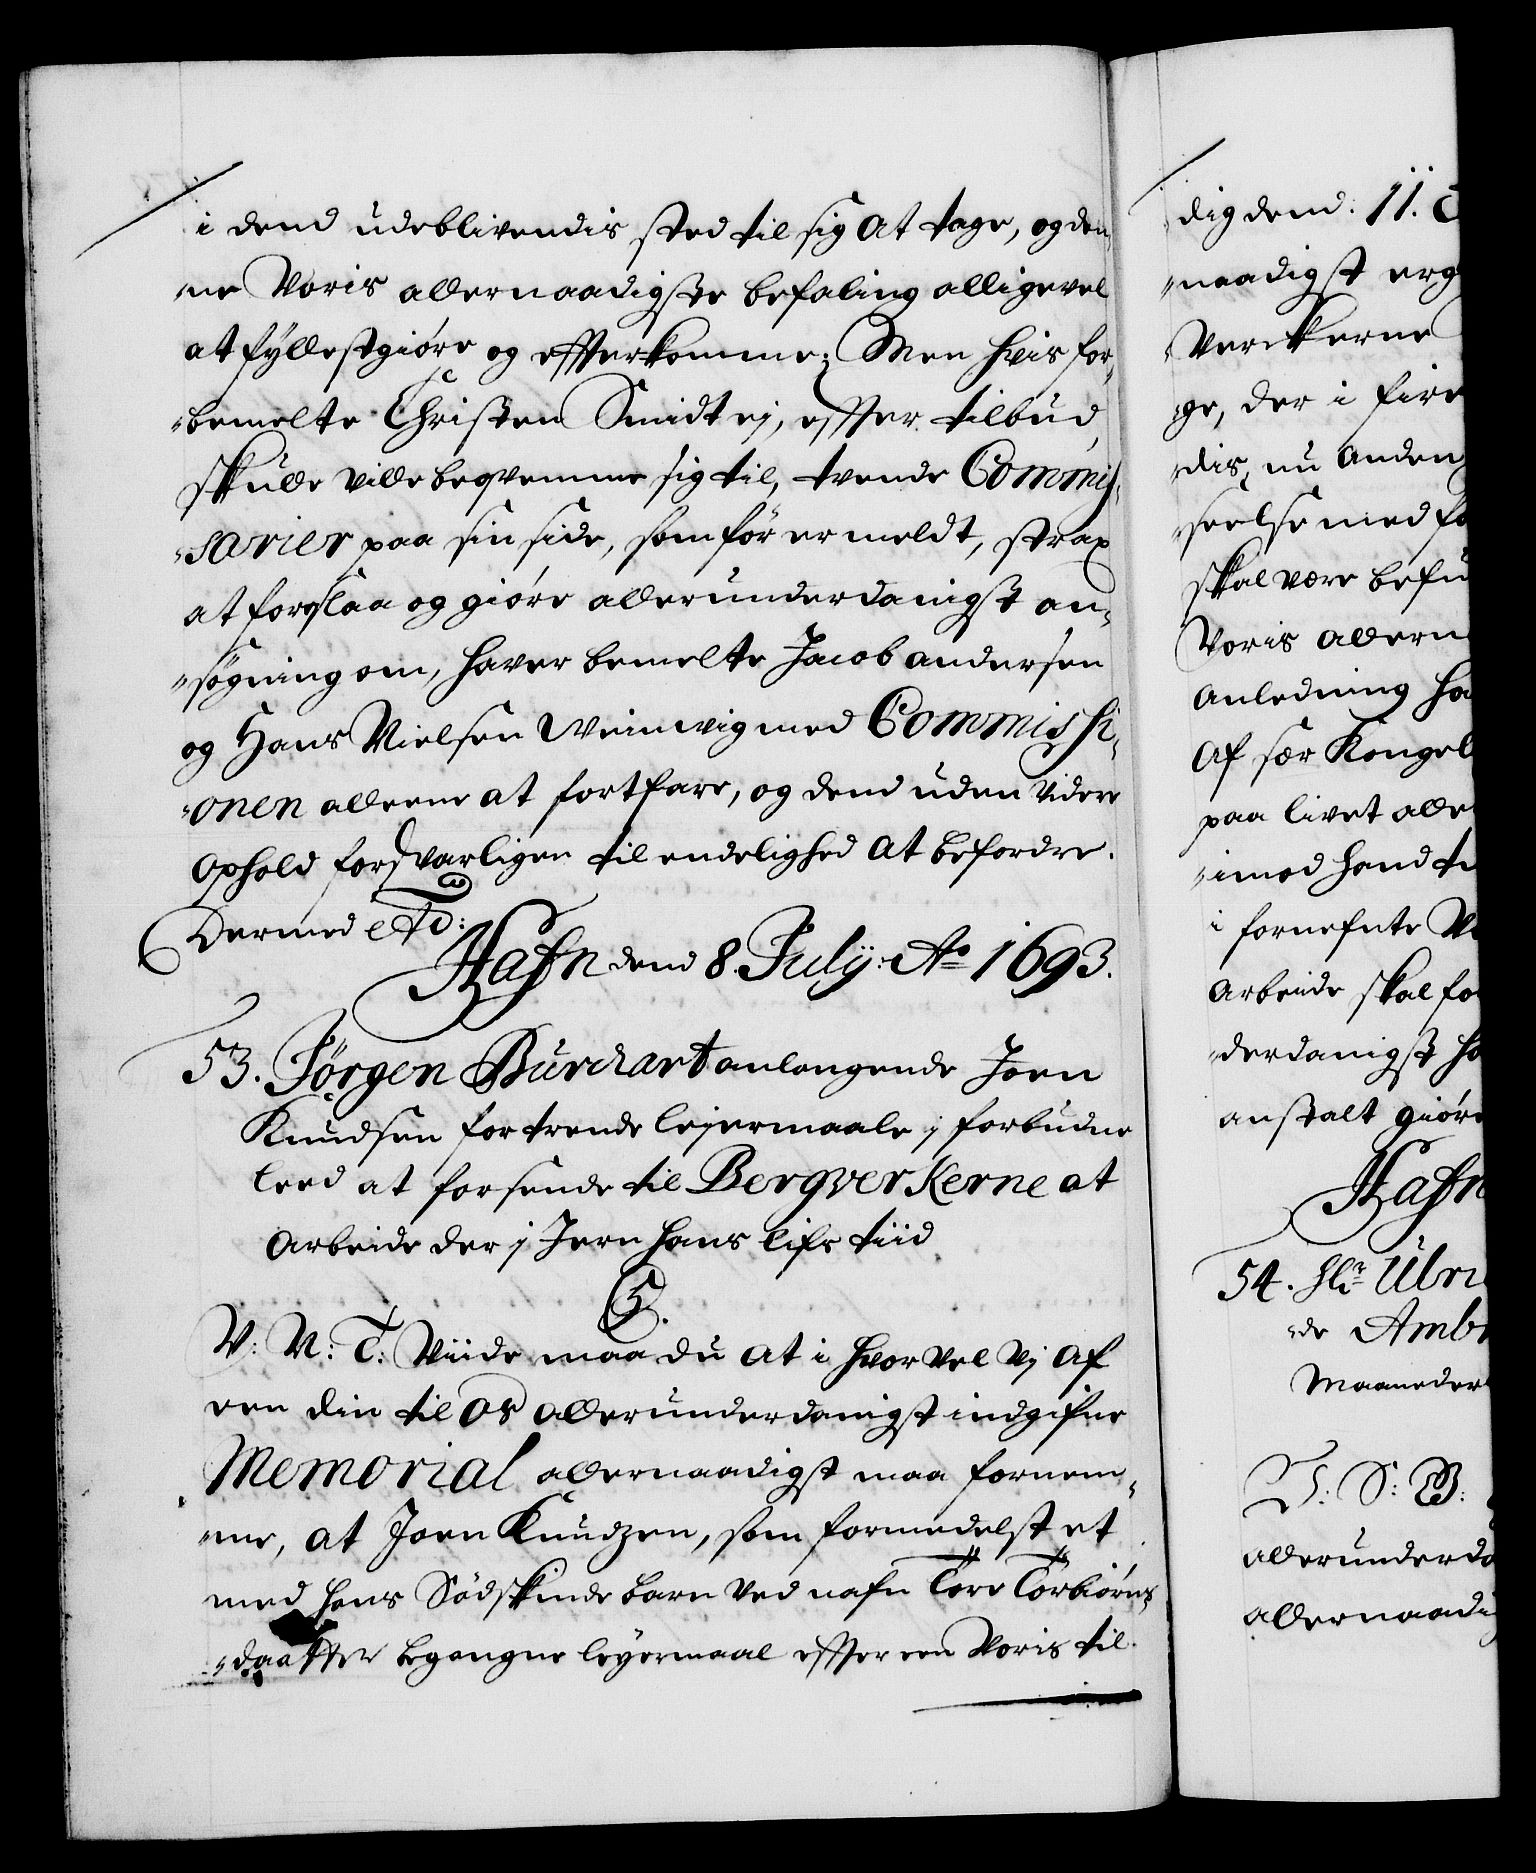 i dend udeblivendis sted til sig at tage, og den„
„ne Voris allernaadigste befaling alligevel
at fyllestgiøre og effterkomme; Men hvis for„
„bemelte Christen Smidt ej, effter tilbud,
skulle ville beqvemme sig til, tvende Commis„
„sarier paa sin side, som før er meldt, strax
at forslaa og giøre allerunderdanigst an„
„søgning om, hafver bemelte Jacob Andersen
og Hans Nielsen Weinwig med Commissi„
„onen alleene at fortfare, og dend uden videre
Ophold forsvarligen til endelighed at befordre.
Dermed etc:
Hafn dend 8. Julij: Ao 1693.
53. Jørgen Burchart anlangende Joen
Knudsen for trende lejermaale j forbudne
leed at forsende til Bergverkerne at
Arbeide der j Jern hans lifs tiid
G.
V: N: T: Viide maa du at i hvorvel vj af
een din til Os allerunderdanigst indgifne
Memorial allernaadigst maa fornem„
„me, at Joen Knudzen, som formedelst et
med hans Sødskinde barn ved nafn Tore Torbiørns
„daatter begangne leyermaal effter een Voris til
dig dend: 11.
„naadigst erg
Verckerne
ge, der i fire
dis, nu anden
„seelse med fo
skal være befu
Voris allern
Anledning ha
Af sær Kongel
paa livet alle
„imod hand ti
i fornefnte Ve
Arbeide skal fo
„derdanigst ha
anstalt giøre
Hafn
54. Hr Ulri
„de Amb
Maaneder
V: S: B:
allerunderda
allernaadi